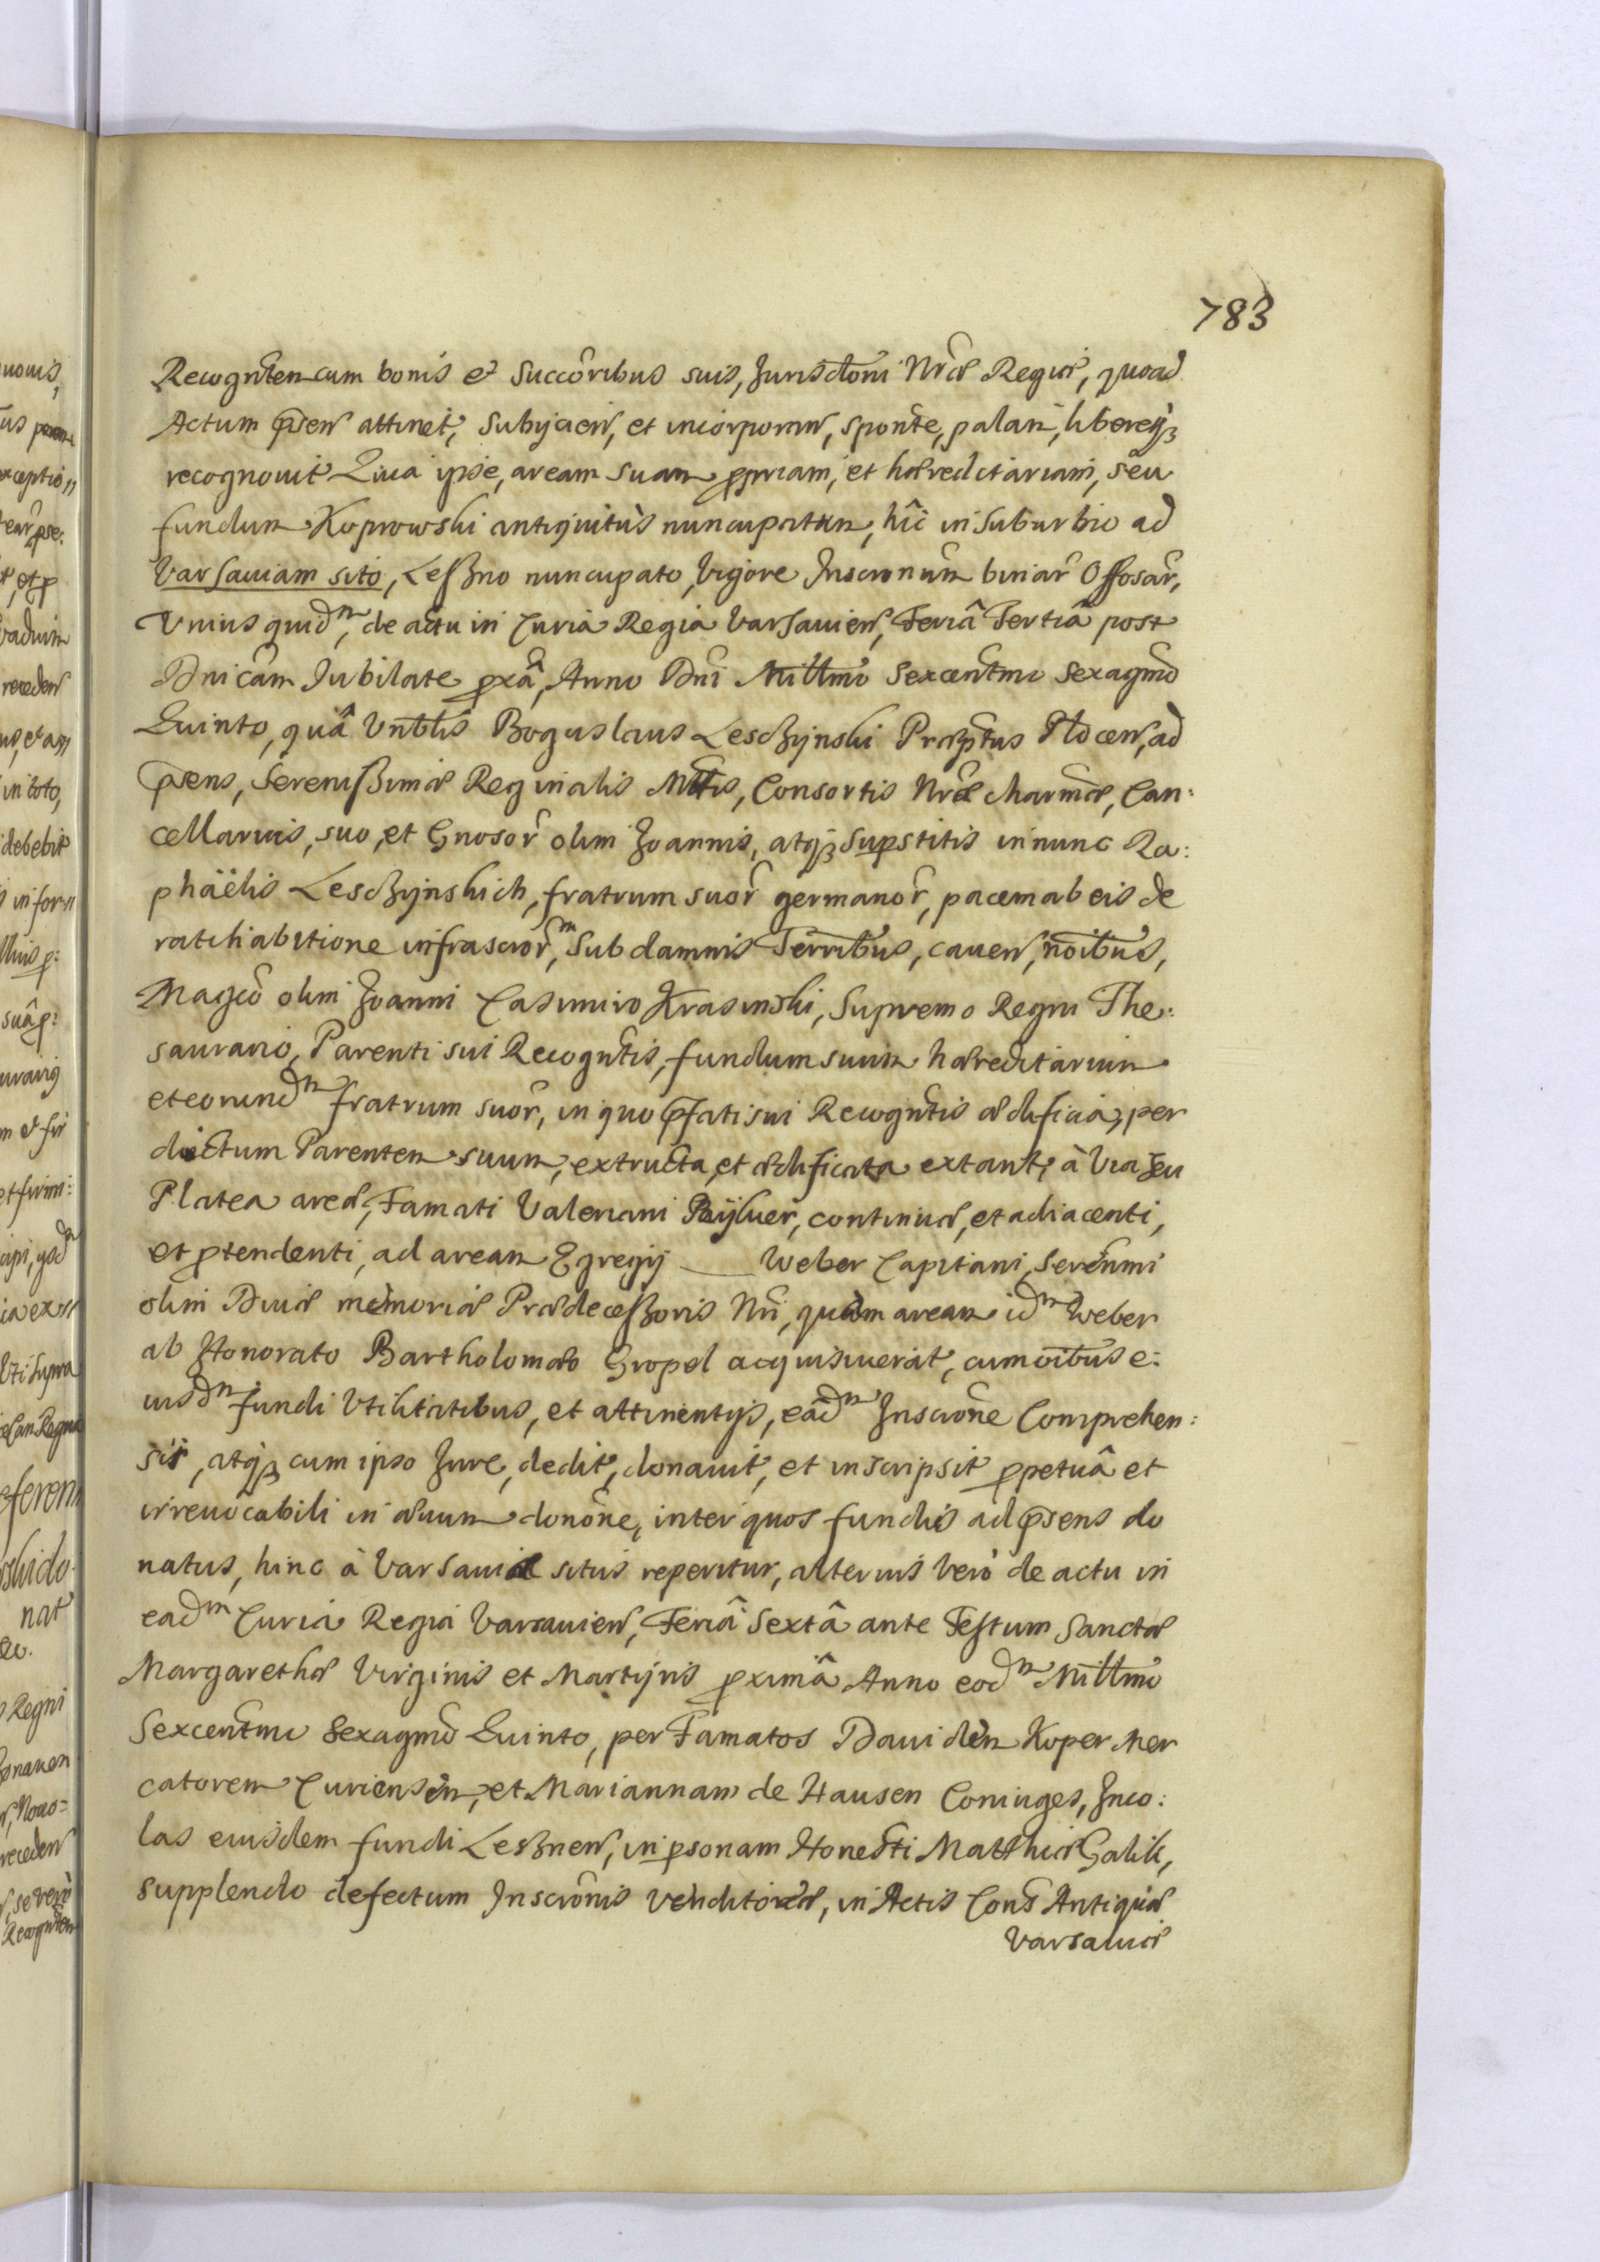 783
Recogntem cum bonis et Succoribus suis, Jurisdctoni Nrae Regiae, quoad
Actum psen attinet, subijcien, et incorporan, sponte, palam, libereq3
recognovit Quia ipse, aream suam ppriam, et haereditariam, seu
fundum Koprowski antiquitùs nuncupatum, hîc in suburbio ad
Varsaviam sito, Leszno nuncupato, vigore Inscronum binar Ossosar,
Vnius quidm, de actu in Curia Regia Varsavien, Feriâ Tertiâ post
Dnicam Iubilate pxâ, Anno Dni Millmo Sexcentmo Sexagmo
Quinto, quâ Vnblis Boguslaus Lesczijnski Praeptus Plocen, ad
psens, Serenissimae Reginalis Mttis, Consortis Nrae Charmae, Can:
cellarius, suo, et Gnosor olim Joannis, atq3 supstitis in nunc Ra:
phaëlis Lesczijnskich, fratrum suor germanor, pacem ab eis de
ratihabitione infrascror,m sub damnis Terribus, caven, noibus,
Magco olim Joanni Casimiro Krasinski, Supremo Regni The:
saurario, Parenti sui Recogntis, fundum suum haereditarium
et eorundm fratrum suor, in quo pfati sui Recogntis aedificia, per
dictum Parentem suum, extructa, et aedificata extant, à via seu
Platea areae, Famati Valeriani Bijlwer, continuae, et adiacenti,
et ptendenti, ad aream Egregij — Weber Capitani, Serenmi
olim Divae memoriae Praedecessoris Nri, quàm aream idm Weber
ab Honorato Bartholomaeo Gropel acquisiverat, cum oibus e:
iusdm fundi Vtilitatibus, et attinentijs, eadm Inscrone Comprehen:
sis, atq3 cum ipso Jure, dedit, donavit, et inscripsit ppetuâ et
irrevocabili in aevum donone, inter quos fundus ad psens do
natus, hinc à Varsaviae situs reperitur, alterius verò de actu in
eadm Curia Regia Varsavien, Feriâ Sextâ ante Festum Sanctae
Margarethae Virginis et Martijris pximâ Anno eodm Millmo
Sexcentmo Sexagmo Quinto, per Famatos Davidem Koper Mer
catorem Curiensem, et Mariannam de Hausen Coniuges, Inco:
las eiusdem fundi Leßnen, in psonam Honesti Matthiae Galik,
supplendo defectum Inscronis venditoriae, in Actis Cons Antiquae
Varsaviae